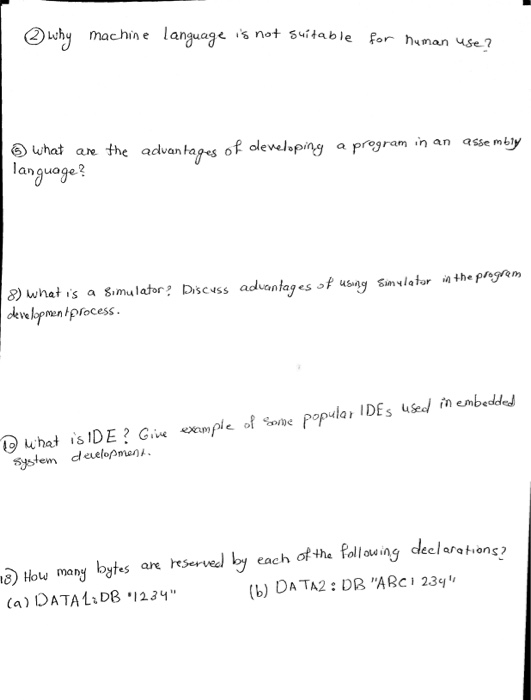 ② why machine language is not suitable for human use?
⑤ what are the advantages of developing a program in an assembly
language?
8) what is a simulator? Discuss advantages of using simulator in the program
development process.
⑩ what is IDE? Give example of some popular IDEs used in embedded
system development.
18) How many bytes are reserved by each of the following declarations?
(a) DATA1:DB "1234" (b) DATA2: DB "ABC1234"